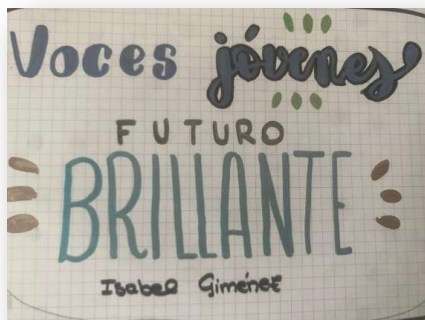 Voces jóvenes
FUTURO
BRILLANTE
Isabel Giménez